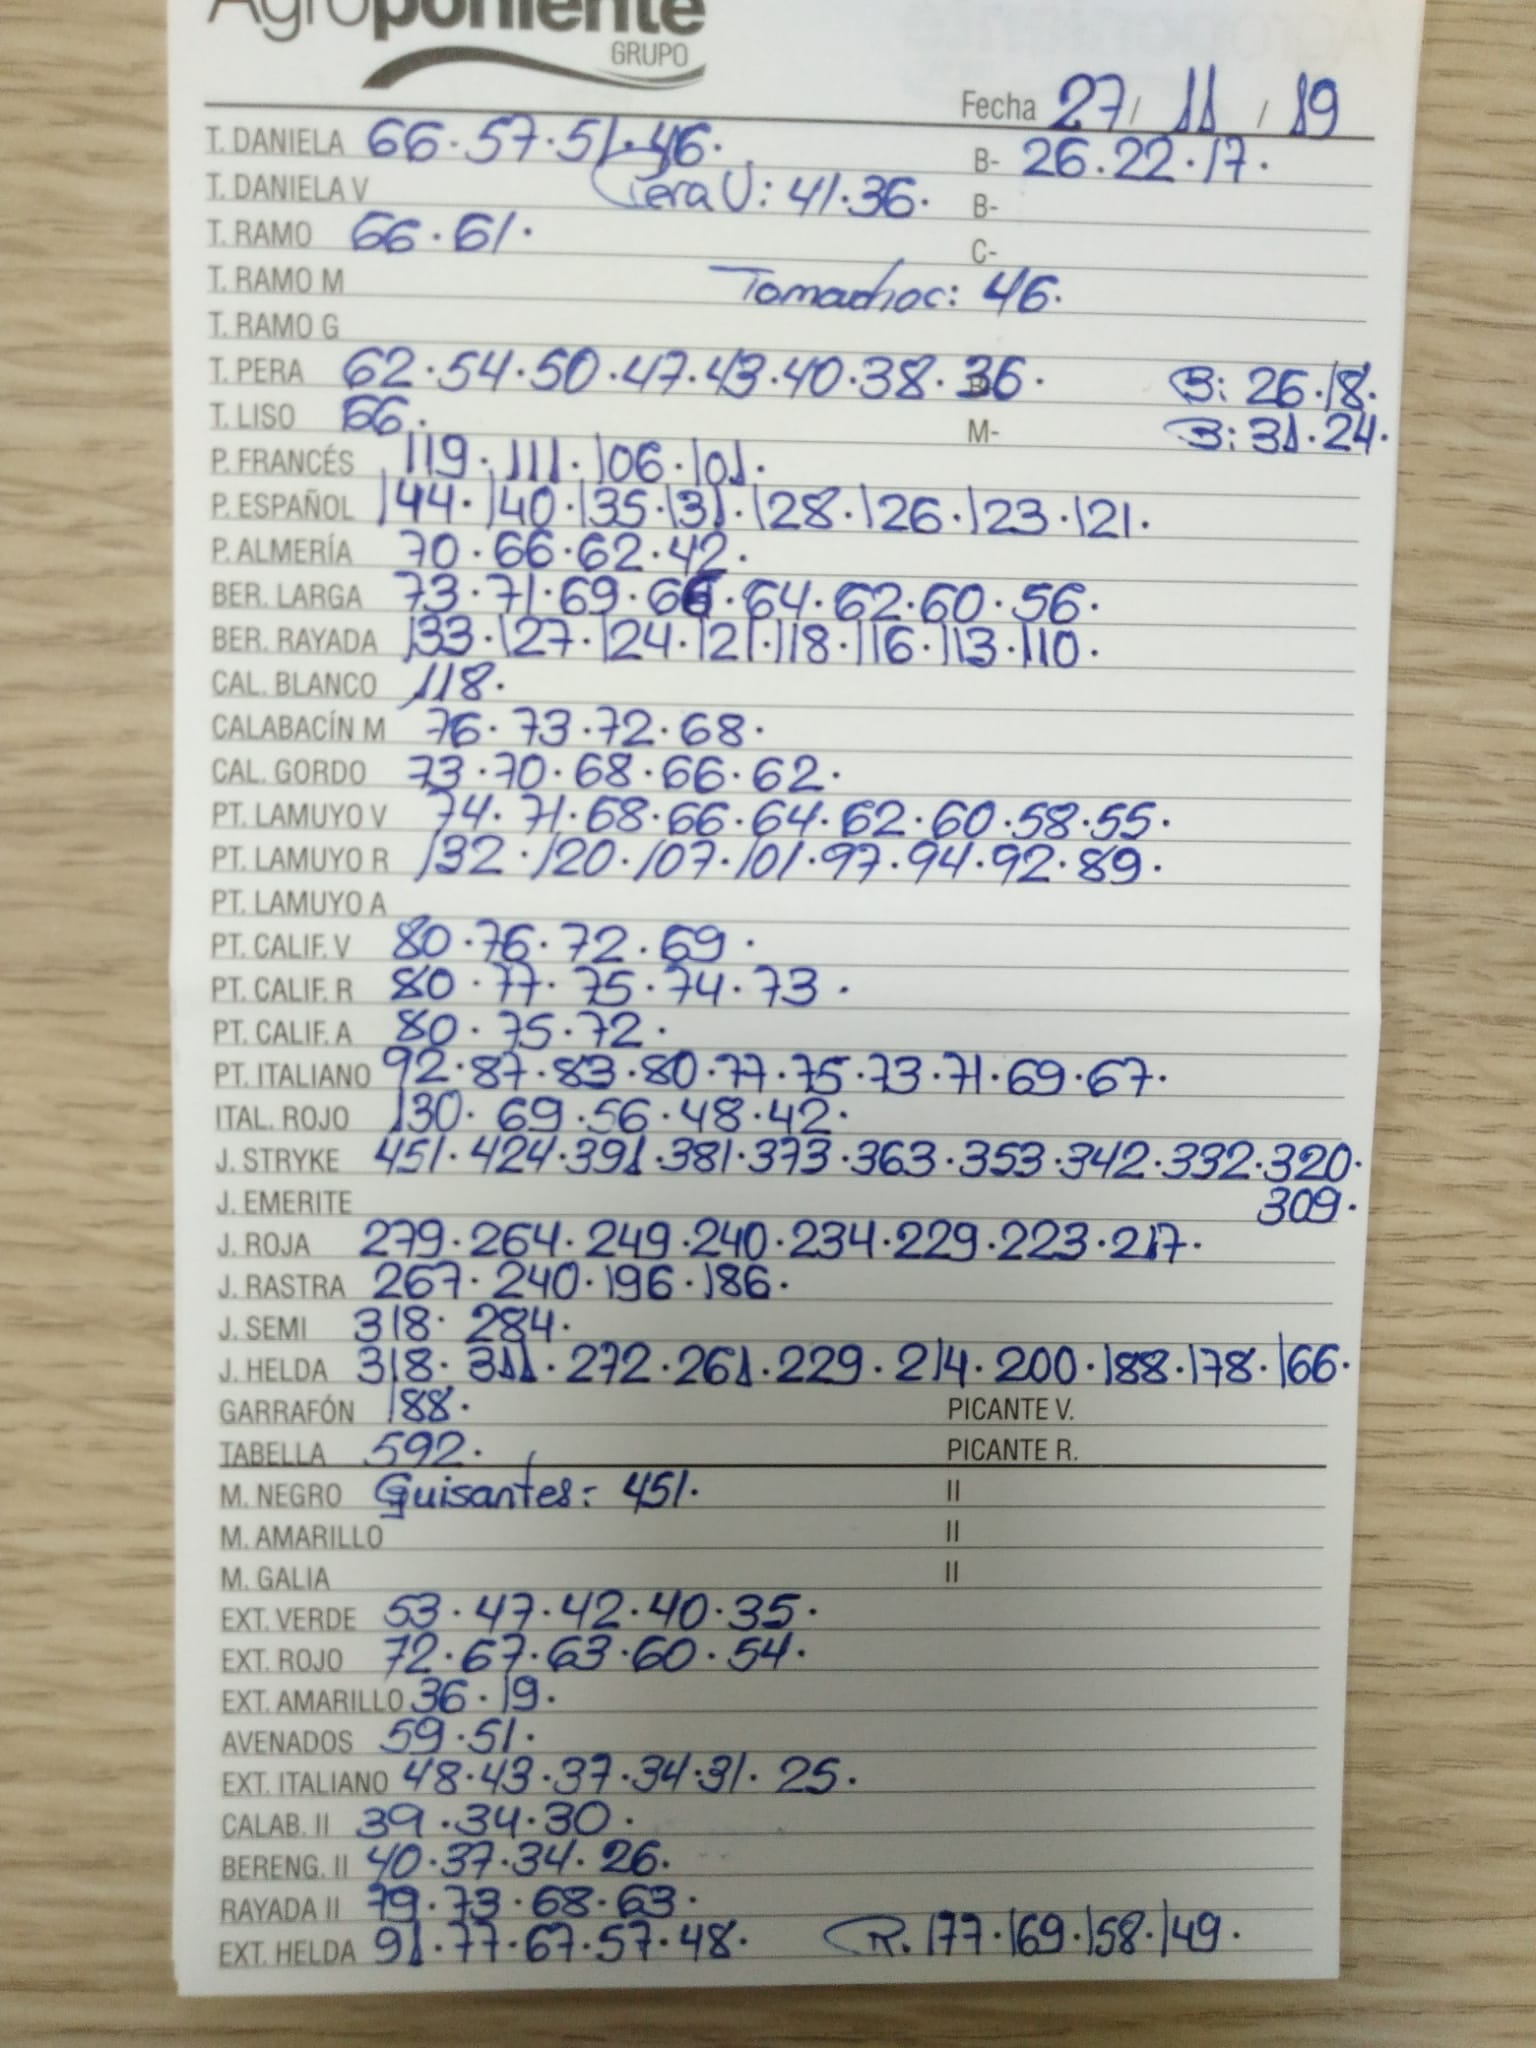 Agroponiente
GRUPO
Fecha 27 / 11 / 19
T. DANIELA 66.57.51.46. B- 26.22.17.
T. DANIELA V Pera V: 41.36. B-
T. RAMO 66.61. C-
T. RAMO M Tomachoc: 46.
T. RAMO G
T. PERA 62.54.50.47.43.40.38.36. B: 26.18.
T. LISO 66. M- B: 31.24.
P. FRANCÉS 119.111.106.101.
P. ESPAÑOL 144.140.135.131.128.126.123.121.
P. ALMERÍA 70.66.62.42.
BER. LARGA 73.71.69.66.64.62.60.56.
BER. RAYADA 133.127.124.121.118.116.113.110.
CAL. BLANCO 118.
CALABACÍN M 76.73.72.68.
CAL. GORDO 73.70.68.66.62.
PT. LAMUYO V 74.71.68.66.64.62.60.58.55.
PT. LAMUYO R 132.120.107.101.97.94.92.89.
PT. LAMUYO A
PT. CALIF. V 80.76.72.69.
PT. CALIF. R 80.77.75.74.73.
PT. CALIF. A 80.75.72.
PT. ITALIANO 92.87.83.80.77.75.73.71.69.67.
ITAL. ROJO 130.69.56.48.42.
J. STRYKE 451.424.391.381.373.363.353.342.332.320.
J. EMERITE 309.
J. ROJA 279.264.249.240.234.229.223.217.
J. RASTRA 267.240.196.186.
J. SEMI 318.284.
J. HELDA 318.311.272.261.229.214.200.188.178.166.
GARRAFÓN 188. PICANTE V.
TABELLA 592. PICANTE R.
M. NEGRO Guisantes: 451. II
M. AMARILLO II
M. GALIA II
EXT. VERDE 53.47.42.40.35.
EXT. ROJO 72.67.63.60.54.
EXT. AMARILLO 36.19.
AVENADOS 59.51.
EXT. ITALIANO 48.43.37.34.31.25.
CALAB. II 39.34.30.
BERENG. II 40.37.34.26.
RAYADA II 79.73.68.63.
EXT. HELDA 91.77.67.57.48. R. 177.169.158.149.